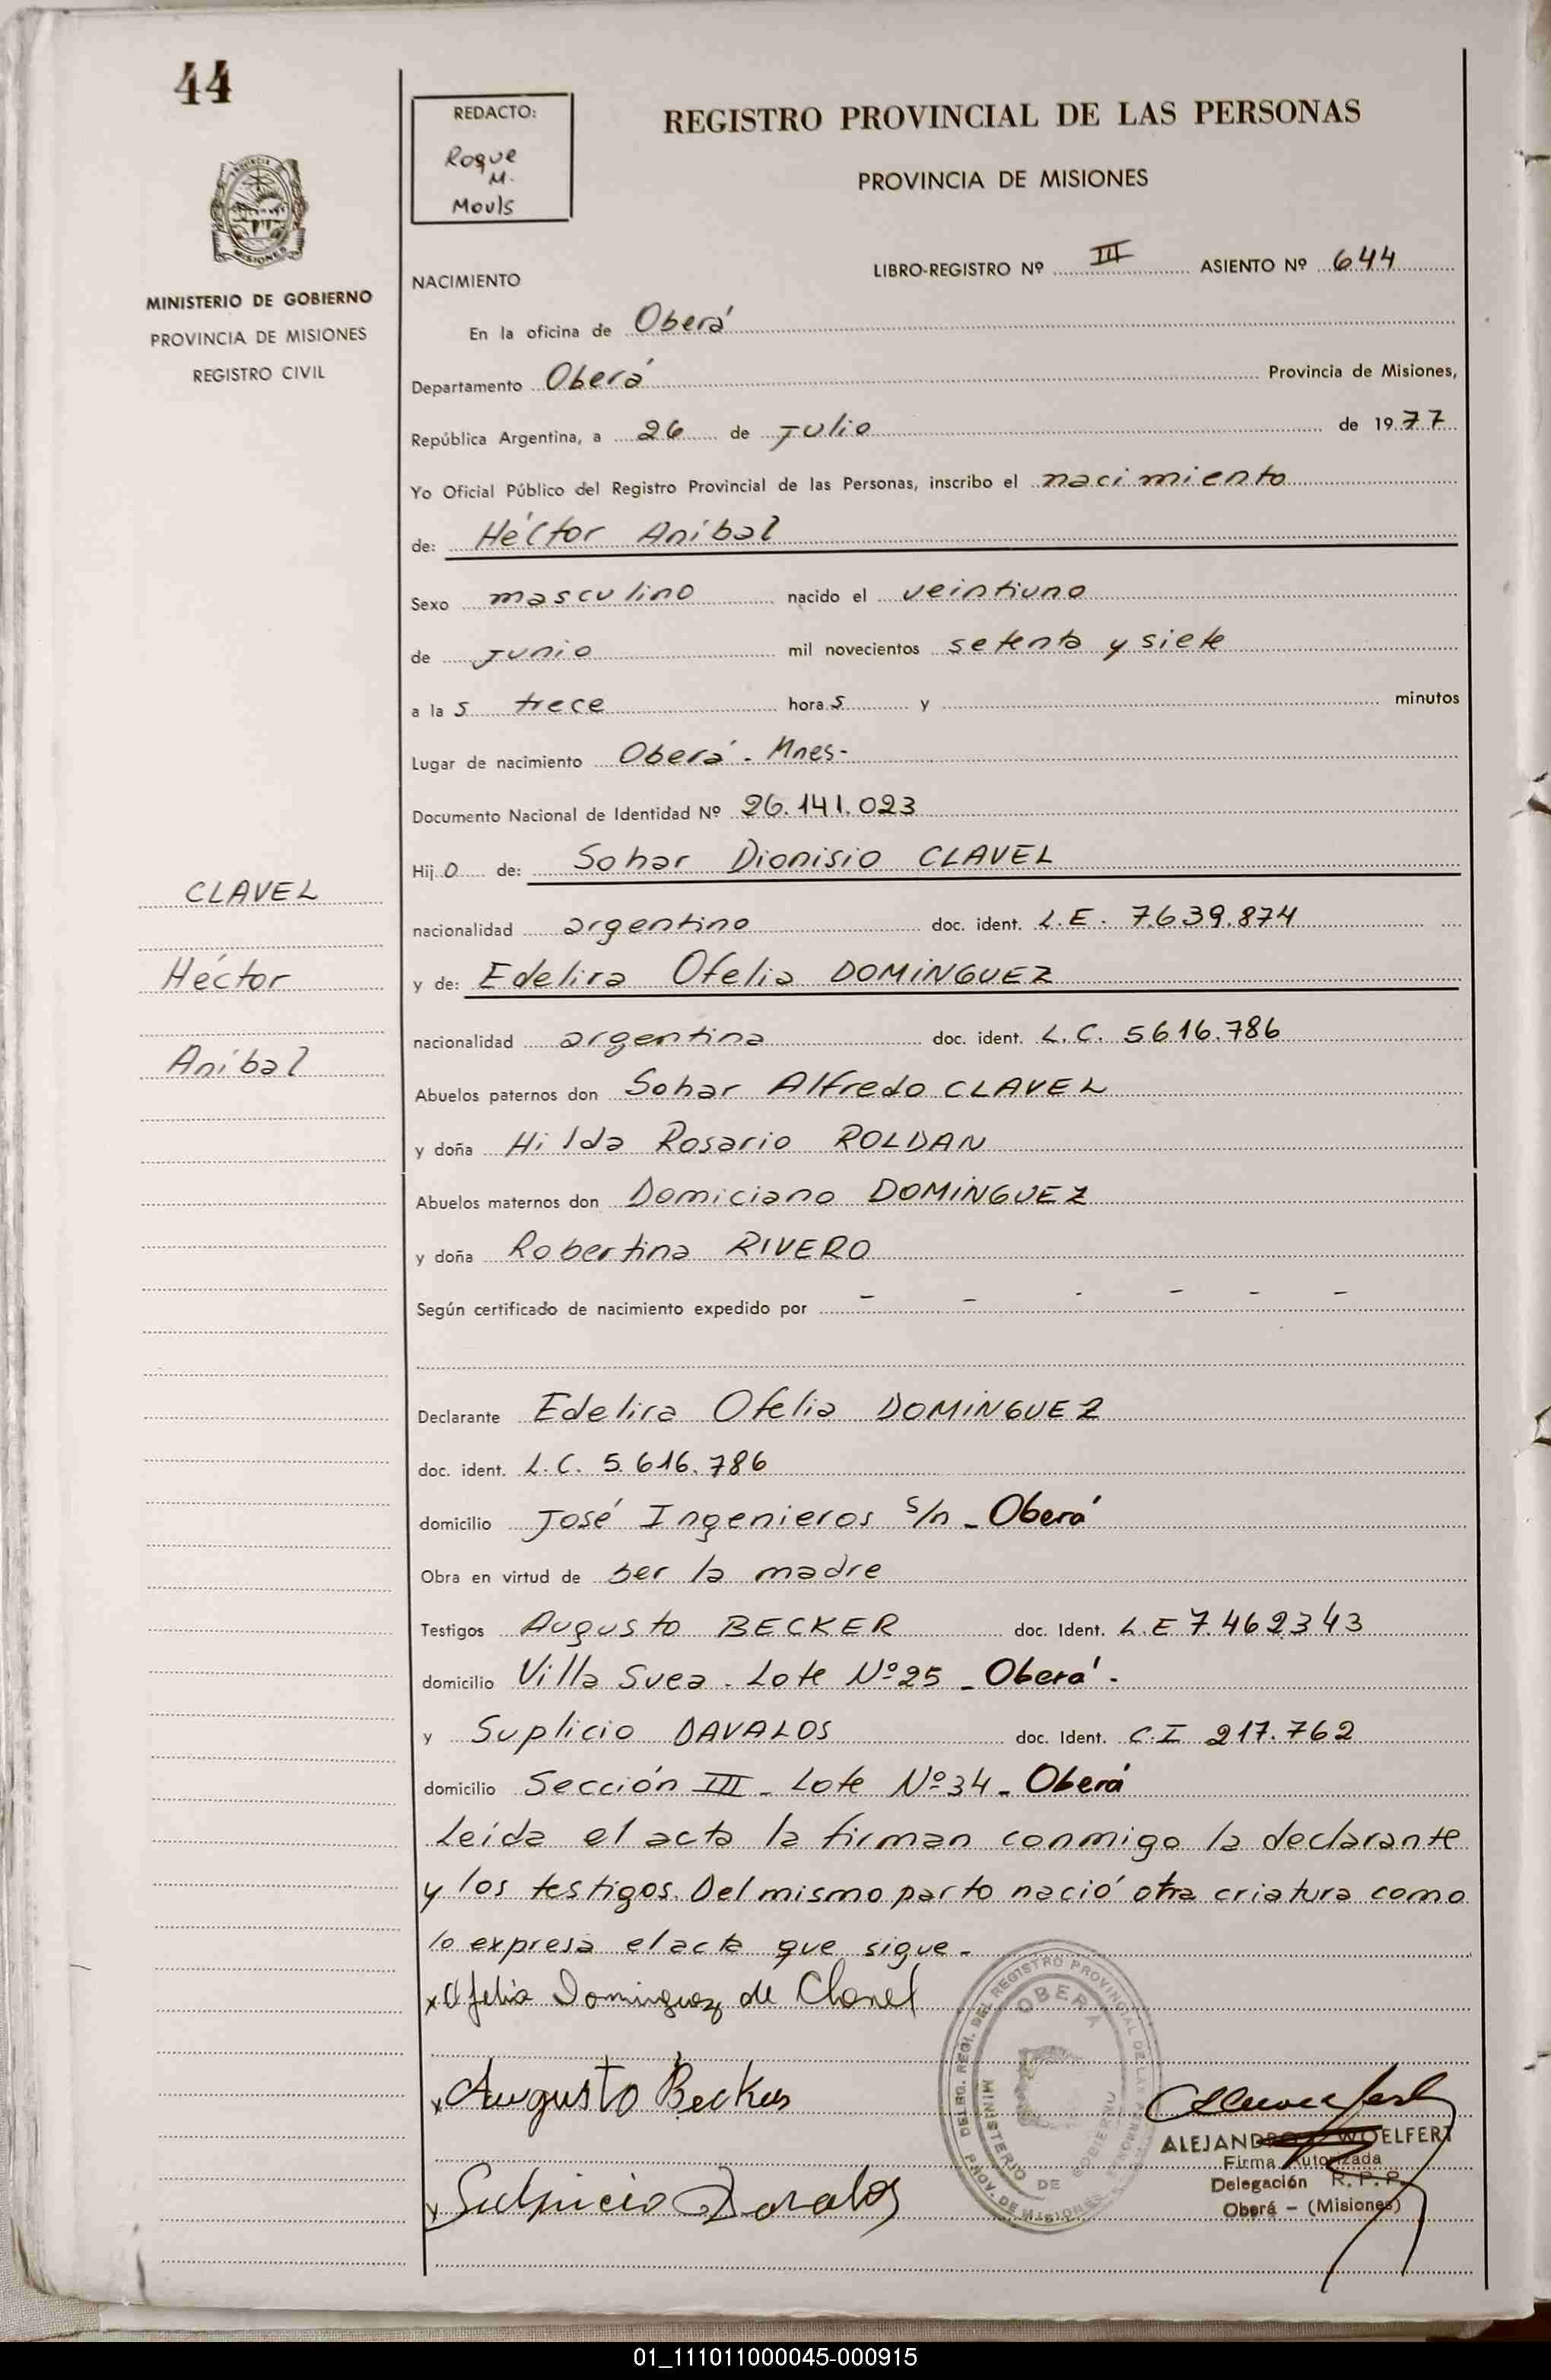 44
REDACTO:
Roque
M.
Mouls
REGISTRO PROVINCIAL DE LAS PERSONAS
PROVINCIA DE MISIONES
MISIONES
MINISTERIO DE GOBIERNO
PROVINCIA DE MISIONES
REGISTRO CIVIL
LIBRO-REGISTRO Nº III ASIENTO Nº 644
NACIMIENTO
En la oficina de Oberá
Departamento Oberá Provincia de Misiones,
República Argentina, a 26 de Julio de 1977
Yo Oficial Público del Registro Provincial de las Personas, inscribo el nacimiento
de: Héctor Aníbal
Sexo masculino nacido el veintiuno
de Junio mil novecientos setenta y siete
a las trece horas y minutos
Lugar de nacimiento Oberá - Mnes-
Documento Nacional de Identidad Nº 26.141.023
Hijo de: Sohar Dionisio CLAVEL
nacionalidad argentino doc. ident. L.E. 7.639.874
y de: Edelira Ofelia DOMINGUEZ
nacionalidad argentina doc. ident. L.C. 5616.786
Abuelos paternos don Sohar Alfredo CLAVEL
y doña Hilda Rosario ROLDAN
Abuelos maternos don Domiciano DOMINGUEZ
y doña Robertina RIVERO
Según certificado de nacimiento expedido por - - - - - -
CLAVEL
Héctor
Aníbal
Declarante Edelira Ofelia DOMINGUEZ
doc. ident. L.C. 5.616.786
domicilio José Ingenieros s/n - Oberá
Obra en virtud de ser la madre
Testigos Augusto BECKER doc. Ident. L.E 7.462343
domicilio Villa Svea - Lote Nº 25 - Oberá -
y Suplicio DAVALOS doc. Ident. C.I 217.762
domicilio Sección III - Lote Nº 34 - Oberá
Leída el acta la firman conmigo la declarante
y los testigos. Del mismo parto nació otra criatura como
lo expresa el acta que sigue -
x Ofelia Dominguez de Clavel
x Augusto Becker
x Sulpicio Davalos
OBERÁ
MINISTERIO DE GOBIERNO
PROV. DE MISIONES
ALEJANDRO WOELFERT
Firma Autorizada
Delegación R.P.P.
Oberá - (Misiones)
01_111011000045-000915